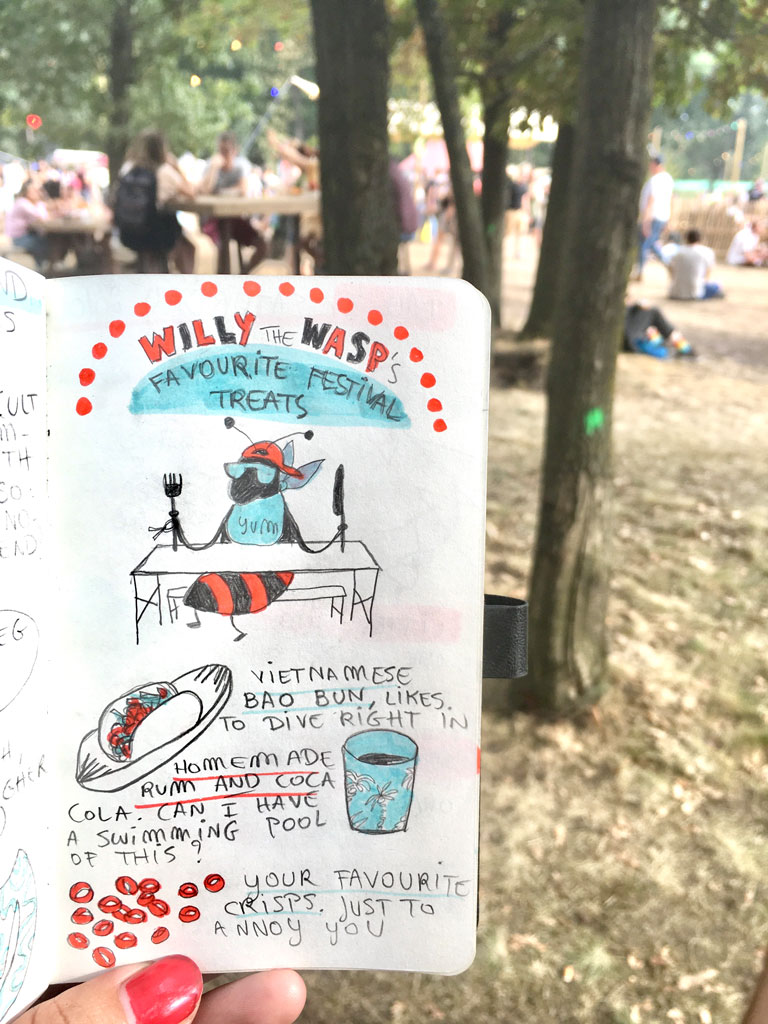 WILLY THE WASP'S
FAVOURITE FESTIVAL
TREATS
YUM
VIETNAMESE
BAO BUN, LIKES
TO DIVE RIGHT IN
HOMEMADE
RUM AND COCA
COLA. CAN I HAVE
A SWIMMING POOL
OF THIS?
YOUR FAVOURITE
CRISPS. JUST TO
ANNOY YOU